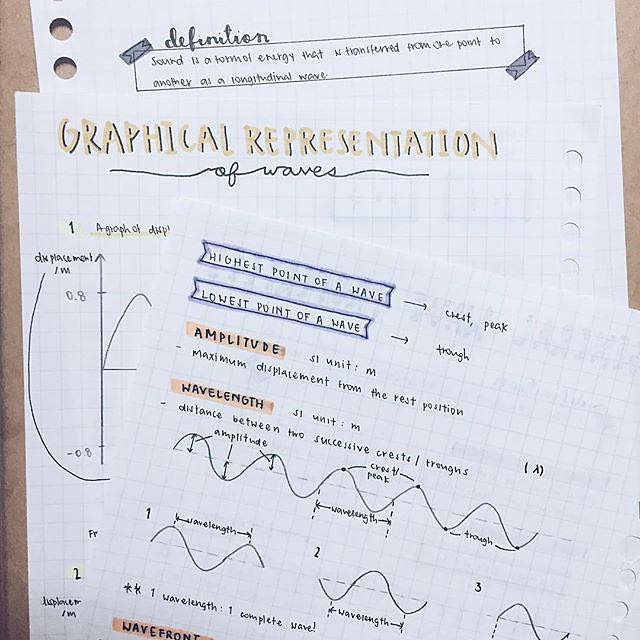 definition
Sound is a form of energy that is transferred from one point to
another as a longitudinal wave
GRAPHICAL REPRESENTATION
of waves
1 A graph of displ
displacement
/m
0.8
-0.8
Fr
2
displacem
/m
HIGHEST POINT OF A WAVE → crest, peak
LOWEST POINT OF A WAVE → trough
AMPLITUDE SI unit: m
- maximum displacement from the rest position
WAVELENGTH SI unit: m
- distance between two successive crests / troughs (λ)
amplitude
crest/
peak
wavelength
trough
1
wavelength
2
wavelength
3
** 1 wavelength: 1 complete wave!
WAVEFRONT